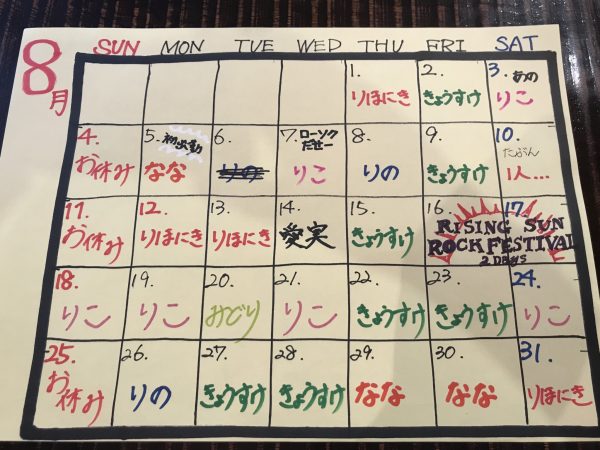 8月
SUN MON TUE WED THU FRI SAT
1. りほにき
2. きょうすけ
3. あの
りこ
4. お休み
5. 初出勤
なな
6. りの
7. ローソク
だせー
りこ
8. りの
9. きょうすけ
10. たぶん
1人...
11. お休み
12. りほにき
13. りほにき
14. 愛実
15. きょうすけ
16. 17.
RISING SUN
ROCK FESTIVAL
2 DAYS
18. りこ
19. りこ
20. みどり
21. りこ
22. きょうすけ
23. きょうすけ
24. りこ
25. お
休み
26. りの
27. きょうすけ
28. きょうすけ
29. なな
30. なな
31. りほにき